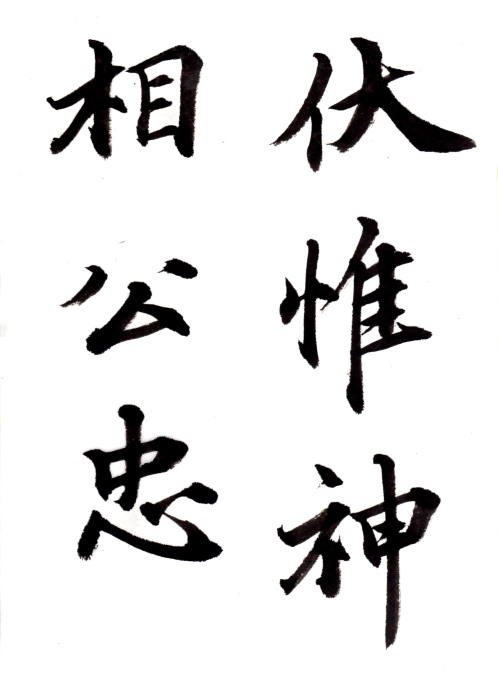 伏惟神
相公忠